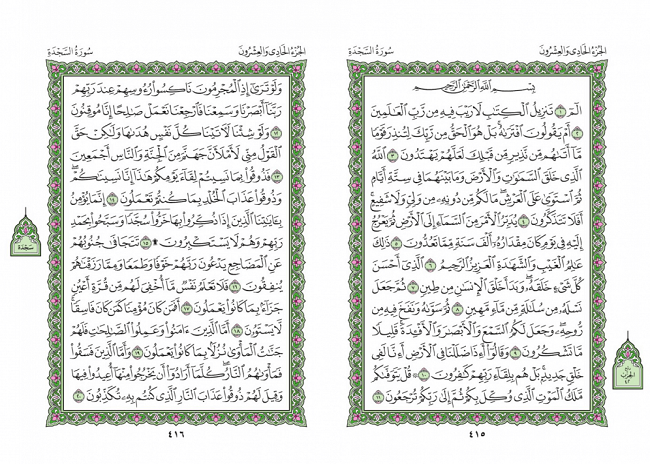 الجُزْءُ الحَادِي وَالعِشْرُونَ
سُورَةُ السَّجْدَةِ
بِسْمِ ٱللَّهِ ٱلرَّحْمَٰنِ ٱلرَّحِيمِ
الٓمٓ ١ تَنزِيلُ ٱلْكِتَٰبِ لَا رَيْبَ فِيهِ مِن رَّبِّ ٱلْعَٰلَمِينَ
٢ أَمْ يَقُولُونَ ٱفْتَرَىٰهُ ۚ بَلْ هُوَ ٱلْحَقُّ مِن رَّبِّكَ لِتُنذِرَ قَوْمًا
مَّآ أَتَىٰهُم مِّن نَّذِيرٍ مِّن قَبْلِكَ لَعَلَّهُمْ يَهْتَدُونَ ٣ ٱللَّهُ
ٱلَّذِى خَلَقَ ٱلسَّمَٰوَٰتِ وَٱلْأَرْضَ وَمَا بَيْنَهُمَا فِى سِتَّةِ أَيَّامٍ
ثُمَّ ٱسْتَوَىٰ عَلَى ٱلْعَرْشِ ۖ مَا لَكُم مِّن دُونِهِۦ مِن وَلِىٍّ وَلَا شَفِيعٍ ۚ
أَفَلَا تَتَذَكَّرُونَ ٤ يُدَبِّرُ ٱلْأَمْرَ مِنَ ٱلسَّمَآءِ إِلَى ٱلْأَرْضِ ثُمَّ يَعْرُجُ
إِلَيْهِ فِى يَوْمٍ كَانَ مِقْدَارُهُۥٓ أَلْفَ سَنَةٍ مِّمَّا تَعُدُّونَ ٥ ذَٰلِكَ
عَٰلِمُ ٱلْغَيْبِ وَٱلشَّهَٰدَةِ ٱلْعَزِيزُ ٱلرَّحِيمُ ٦ ٱلَّذِىٓ أَحْسَنَ
كُلَّ شَىْءٍ خَلَقَهُۥ ۖ وَبَدَأَ خَلْقَ ٱلْإِنسَٰنِ مِن طِينٍ ٧ ثُمَّ جَعَلَ
نَسْلَهُۥ مِن سُلَٰلَةٍ مِّن مَّآءٍ مَّهِينٍ ٨ ثُمَّ سَوَّىٰهُ وَنَفَخَ فِيهِ مِن
رُّوحِهِۦ ۖ وَجَعَلَ لَكُمُ ٱلسَّمْعَ وَٱلْأَبْصَٰرَ وَٱلْأَفْـِٔدَةَ ۚ قَلِيلًا
مَّا تَشْكُرُونَ ٩ وَقَالُوٓا۟ أَءِذَا ضَلَلْنَا فِى ٱلْأَرْضِ أَءِنَّا لَفِى
خَلْقٍ جَدِيدٍۭ ۚ بَلْ هُم بِلِقَآءِ رَبِّهِمْ كَٰفِرُونَ ١٠ قُلْ يَتَوَفَّىٰكُم
مَّلَكُ ٱلْمَوْتِ ٱلَّذِى وُكِّلَ بِكُمْ ثُمَّ إِلَىٰ رَبِّكُمْ تُرْجَعُونَ ١١
٤١٥
الجُزْءُ الحَادِي وَالعِشْرُونَ
سُورَةُ السَّجْدَةِ
وَلَوْ تَرَىٰٓ إِذِ ٱلْمُجْرِمُونَ نَاكِسُوا۟ رُءُوسِهِمْ عِندَ رَبِّهِمْ
رَبَّنَآ أَبْصَرْنَا وَسَمِعْنَا فَٱرْجِعْنَا نَعْمَلْ صَٰلِحًا إِنَّا مُوقِنُونَ
١٢ وَلَوْ شِئْنَا لَـَٔاتَيْنَا كُلَّ نَفْسٍ هُدَىٰهَا وَلَٰكِنْ حَقَّ
ٱلْقَوْلُ مِنِّى لَأَمْلَأَنَّ جَهَنَّمَ مِنَ ٱلْجِنَّةِ وَٱلنَّاسِ أَجْمَعِينَ
١٣ فَذُوقُوا۟ بِمَا نَسِيتُمْ لِقَآءَ يَوْمِكُمْ هَٰذَآ إِنَّا نَسِينَٰكُمْ ۖ
وَذُوقُوا۟ عَذَابَ ٱلْخُلْدِ بِمَا كُنتُمْ تَعْمَلُونَ ١٤ إِنَّمَا يُؤْمِنُ
بِـَٔايَٰتِنَا ٱلَّذِينَ إِذَا ذُكِّرُوا۟ بِهَا خَرُّوا۟ سُجَّدًا وَسَبَّحُوا۟ بِحَمْدِ
رَبِّهِمْ وَهُمْ لَا يَسْتَكْبِرُونَ ۩ ١٥ تَتَجَافَىٰ جُنُوبُهُمْ
عَنِ ٱلْمَضَاجِعِ يَدْعُونَ رَبَّهُمْ خَوْفًا وَطَمَعًا وَمِمَّا رَزَقْنَٰهُمْ
يُنفِقُونَ ١٦ فَلَا تَعْلَمُ نَفْسٌ مَّآ أُخْفِىَ لَهُم مِّن قُرَّةِ أَعْيُنٍ
جَزَآءًۢ بِمَا كَانُوا۟ يَعْمَلُونَ ١٧ أَفَمَن كَانَ مُؤْمِنًا كَمَن كَانَ فَاسِقًا ۚ
لَّا يَسْتَوُۥنَ ١٨ أَمَّا ٱلَّذِينَ ءَامَنُوا۟ وَعَمِلُوا۟ ٱلصَّٰلِحَٰتِ فَلَهُمْ
جَنَّٰتُ ٱلْمَأْوَىٰ نُزُلًۢا بِمَا كَانُوا۟ يَعْمَلُونَ ١٩ وَأَمَّا ٱلَّذِينَ فَسَقُوا۟
فَمَأْوَىٰهُمُ ٱلنَّارُ ۖ كُلَّمَآ أَرَادُوٓا۟ أَن يَخْرُجُوا۟ مِنْهَآ أُعِيدُوا۟ فِيهَا
وَقِيلَ لَهُمْ ذُوقُوا۟ عَذَابَ ٱلنَّارِ ٱلَّذِى كُنتُم بِهِۦ تُكَذِّبُونَ ٢٠
٤١٦
سجدة